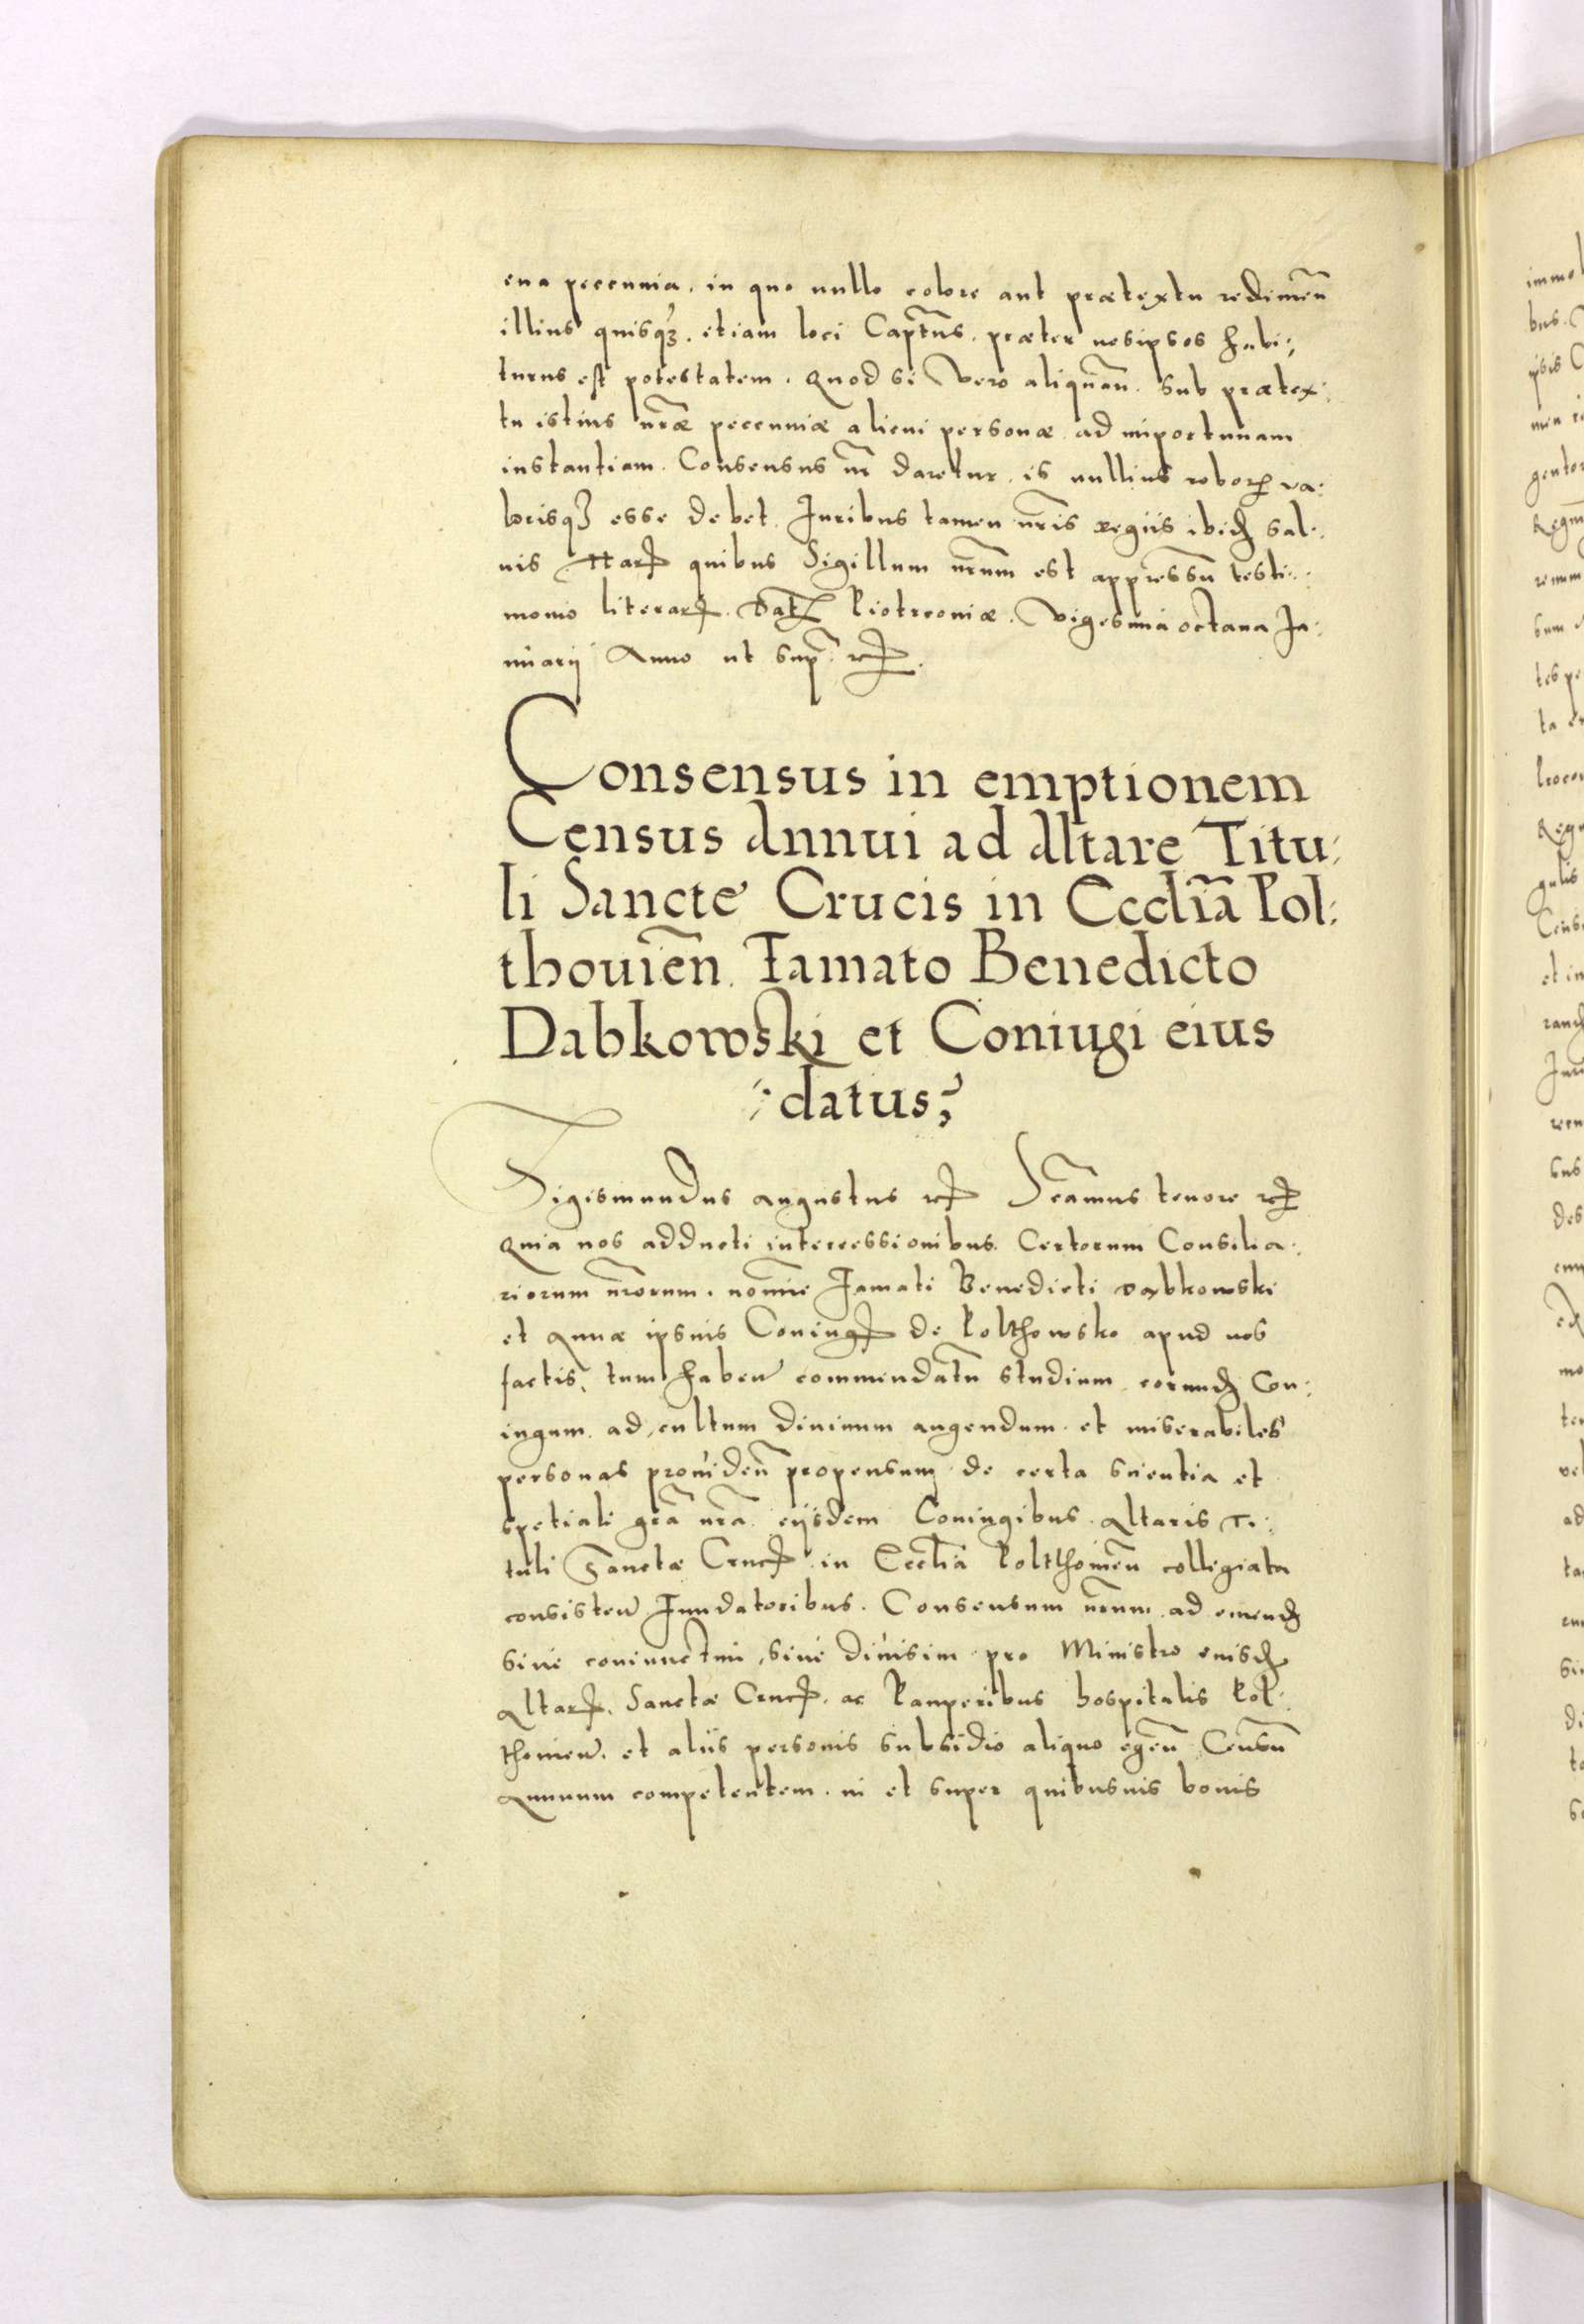 ena peccunia. in quo nullo colore aut prætextu redimen̄
illius quisqꝫ. etiam loci Capt̄ns. præter nosipsos habi;
turus est potestatem. Quod si Vero aliquan̄. Sub prætex:
tu istius nr̄æ peccuniæ alicui personæ ad importunam
instantiam. Consensus nr̄ daretur. is nullius robor̨ va:
lorisqꝫ esse debet. Iuribus tamen nr̄is regiis ibid̨ sal:
uis Har̨ quibus Sigillum nr̄um est appressū testi:
monio literar̨. Dat̨ Piotrcouiæ. Vigesima octaua Ja:
nuarij Anno ut sup̄. rc̨.
Consensus in emptionem
Census Annui ad Altare Titu:
li Sancte Crucis in Eccliā Pol:
thouien̄. Famato Benedicto
Dabkowski et Coniugi eius
datus;
Sigismundus augustus rc̨ Scāmus tenore rc̨
Quia nos adducti intercessionibus. Certorum Consilia:
riorum nr̄orum. nomīe Famati Benedicti Dabkowski
et Annæ ipsuis Coniug̨ de Polthowsko apud nos
factis, tum haben̄ commendatū studium eorund̨ Con:
iugum. ad cultum diuinum augendum. et miserabiles
personas prouiden̄ propensum. de certa scientia et
spetiali grā nrā eijsdem Coniugibus. altaris Ti:
tuli Sanctæ Cruc̨ in Eccliā Poltthouien̄ collegiata
consisten̄ Fundatoribus. Consensum nr̄um ad emend̨
siue coniunctim, siue diuisim pro Ministro euisd̨
altar̨. Sanctæ Cruc̨. ac Pauperibus hospitalis Pol:
thouien̄. et aliis personis subsidio aliquo egen̄ Censū
Annuum competentem. in et super quibusuis bonis